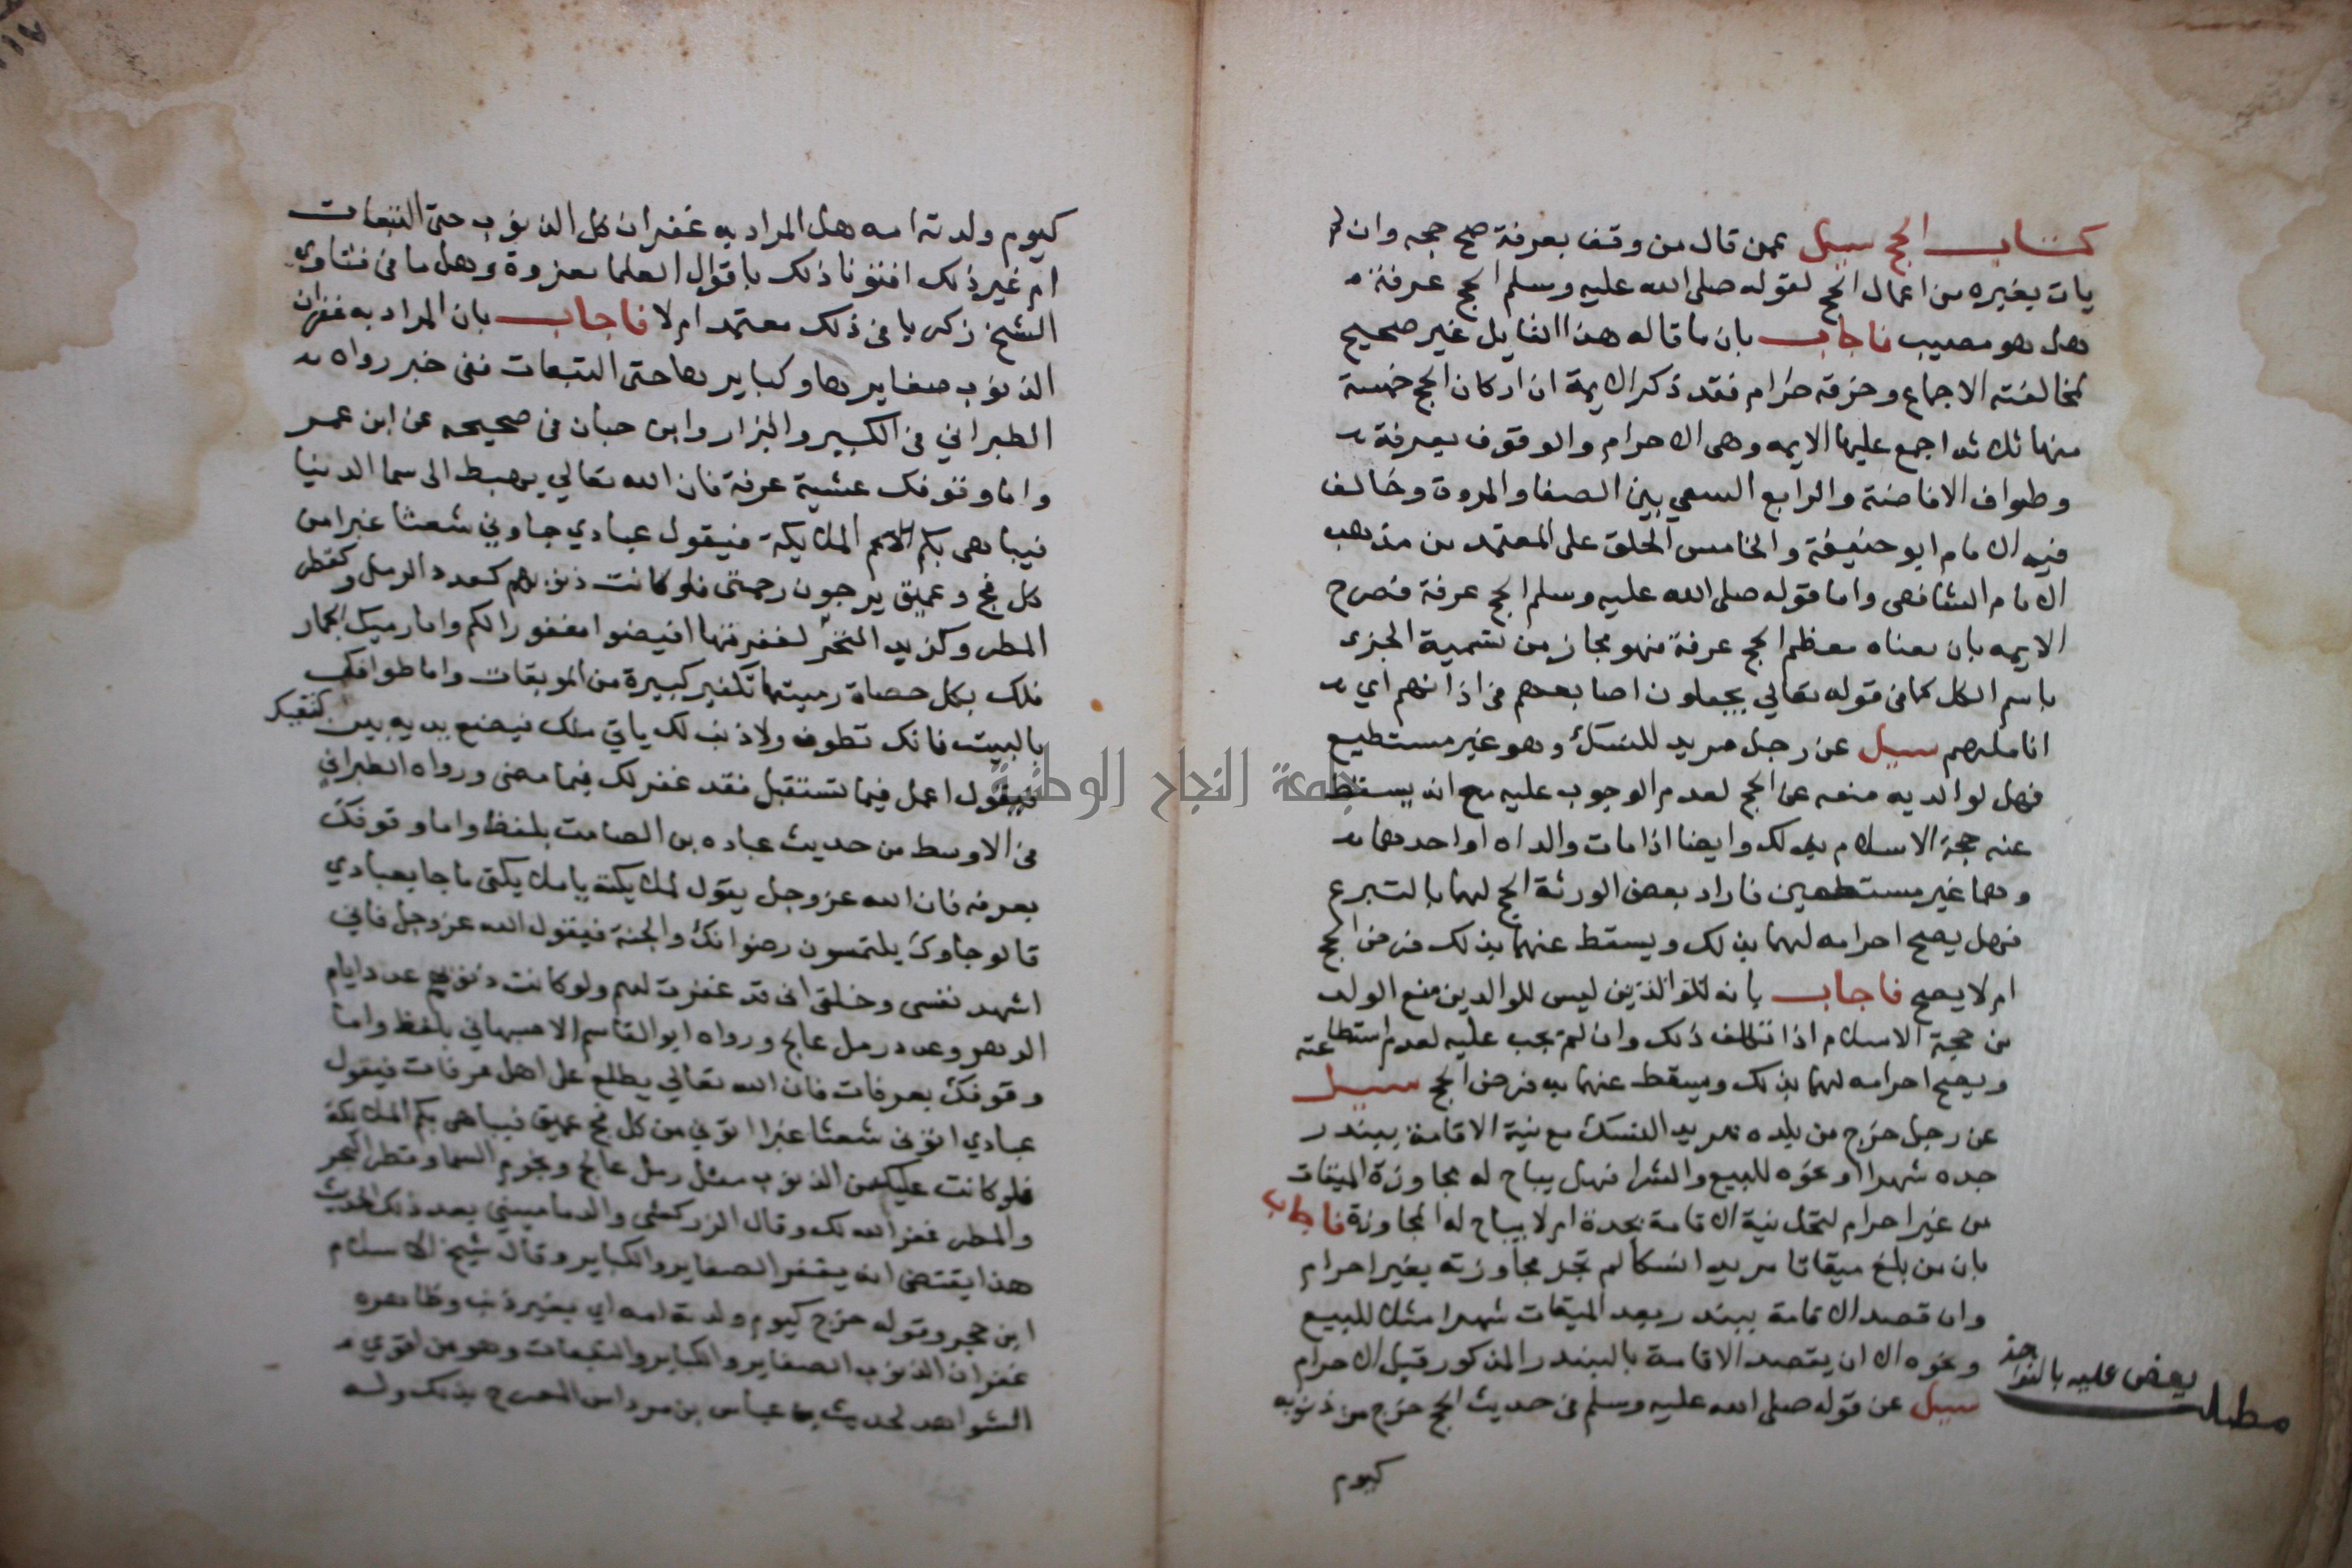 كتاب الحج سيل عمن قال من وقف بعرفة صح حجه وان لم
يات بغيره من اعمال الحج لقوله صلى الله عليه وسلم الحج عرفة
هل هو مصيب فاجاب بان ما قاله هذا القايل غير صحيح
لمخالفته الاجماع وخرقه حرام فقد ذكر الايمة ان اركان الحج خمسة
منها ثلاثه اجمع عليها الايمه وهى الاحرام والوقوف بعرفة
وطواف الافاضة والرابع السعي بين الصفا والمروة وخالف
فيه الامام ابو حنيفة والخامس الحلق على المعتمد من مذهب
الامام الشافعى واما قوله صلى الله عليه وسلم الحج عرفة فصرح
الايمه بان معناه معظم الحج عرفة فهو مجاز من تسمية الجزى
باسم الكل كما فى قوله تعالي يجعلون اصابعهم فى اذانهم اي
اناملهم سيل عن رجل مريد للنسك وهو غير مستطيع
فهل لوالديه منعه عن الحج لعدم الوجوب عليه مع انه يسقط
عنه حجة الاسلام بذلك وايضا اذا مات والداه او احدهما
وهما غير مستطعين فاراد بعض الورثة الحج لهما بالتبرع
فهل يصح احرامه لهما بذلك ويسقط عنهما بذلك فرض الحج
ام لا يصح فاجاب بانه ليس للوالدين منع الولد
من حجة الاسلام اذا تكلف ذلك وان لم تجب عليه لعدم استطاعته
ويصح احرامه لهما بذلك ويسقط عنهما به فرض الحج سيل
عن رجل خرج من بلده مريد النسك مع نية الاقامة ببندر
جده شهرا او نحوه للبيع والشرا فهل يباح له مجاوزة الميقات
من غير احرام لتخلل نية الاقامة بجدة ام لا يباح له المجاوزة فاجاب
بان من بلغ ميقاتا مريدا نسكا لم تجز مجاوزته بغير احرام
وان قصد الاقامة ببندر بعد الميقات شهرا مثلا للبيع
ونحوه الا ان يقصد الاقامة بالبندر المذكور قبل الاحرام
سيل عن قوله صلى الله عليه وسلم فى حديث الحج خرج من ذنوبه
كيوم
مطلب
يعض عليه بالنواجذ
كيوم ولدته امه هل المراد به غفران كل الذنوب حتى التبعات
ام غير ذلك افتونا ذلك باقوال العلما معزوة وهل ما فى فتاوى
الشيخ زكريا فى ذلك معتمد ام لا فاجاب بان المراد به غفران
الذنوب صغايرها وكبايرها حتى التبعات ففى خبر رواه
الطبراني فى الكبير والبزار وابن حبان فى صحيحه عن ابن عمر
واما وقوفك عشية عرفة فان الله تعالي يهبط الى سما الدنيا
فيباهى بكم الملايكة فيقول عبادي جاوني شعثا غبرا من
كل فج عميق يرجون رحمتى فلو كانت ذنوبهم كعدد الرمل وكقطر
المطر وكزبد البحر لغفرتها افيضوا مغفورا لكم واما رميك الجمار
فلك بكل حصاة رميتها تكفير كبيرة من الموبقات واما طوافك
بالبيت فانك تطوف ولا ذنب لك ياتي ملك فيضع يديه بين كتفيك
فيقول اعمل فيما تستقبل فقد غفر لك فيما مضى ورواه الطبراني
فى الاوسط من حديث عباده بن الصامت بلفظ واما وقوفك
بعرفه فان الله عز وجل يقول لملايكته يا ملايكتى ما جا بعبادي
قالو جاوك يلتمسون رضوانك والجنة فيقول الله عز وجل فاني
اشهد نفسى وخلقى انى قد غفرت لهم ولو كانت ذنوبهم عدد ايام
الدهر وعدد رمل عالج ورواه ابو القاسم الاصبهاني بلفظ واما
وقوفك بعرفات فان الله تعالي يطلع على اهل عرفات فيقول
عبادي اتونى شعثا غبرا اتوني من كل فج عميق فيباهى بكم الملايكة
فلو كانت عليك من الذنوب مثل رمل عالج ونجوم السما وقطر البحر
والمطر غفر الله لك وقال الزركشى والدماميني بعد ذلك الحديث
هذا يقتضى انه يغفر الصغاير والكباير وقال شيخ الاسلام
ابن حجر وقوله خرج كيوم ولدته امه اي بغير ذنب وظاهره
غفران الذنوب الصغاير والكباير والتبعات وهو من اقوي
الشواهد لحديث عباس بن مرداس المصرح بذلك وله
جامعة النجاح الوطنية